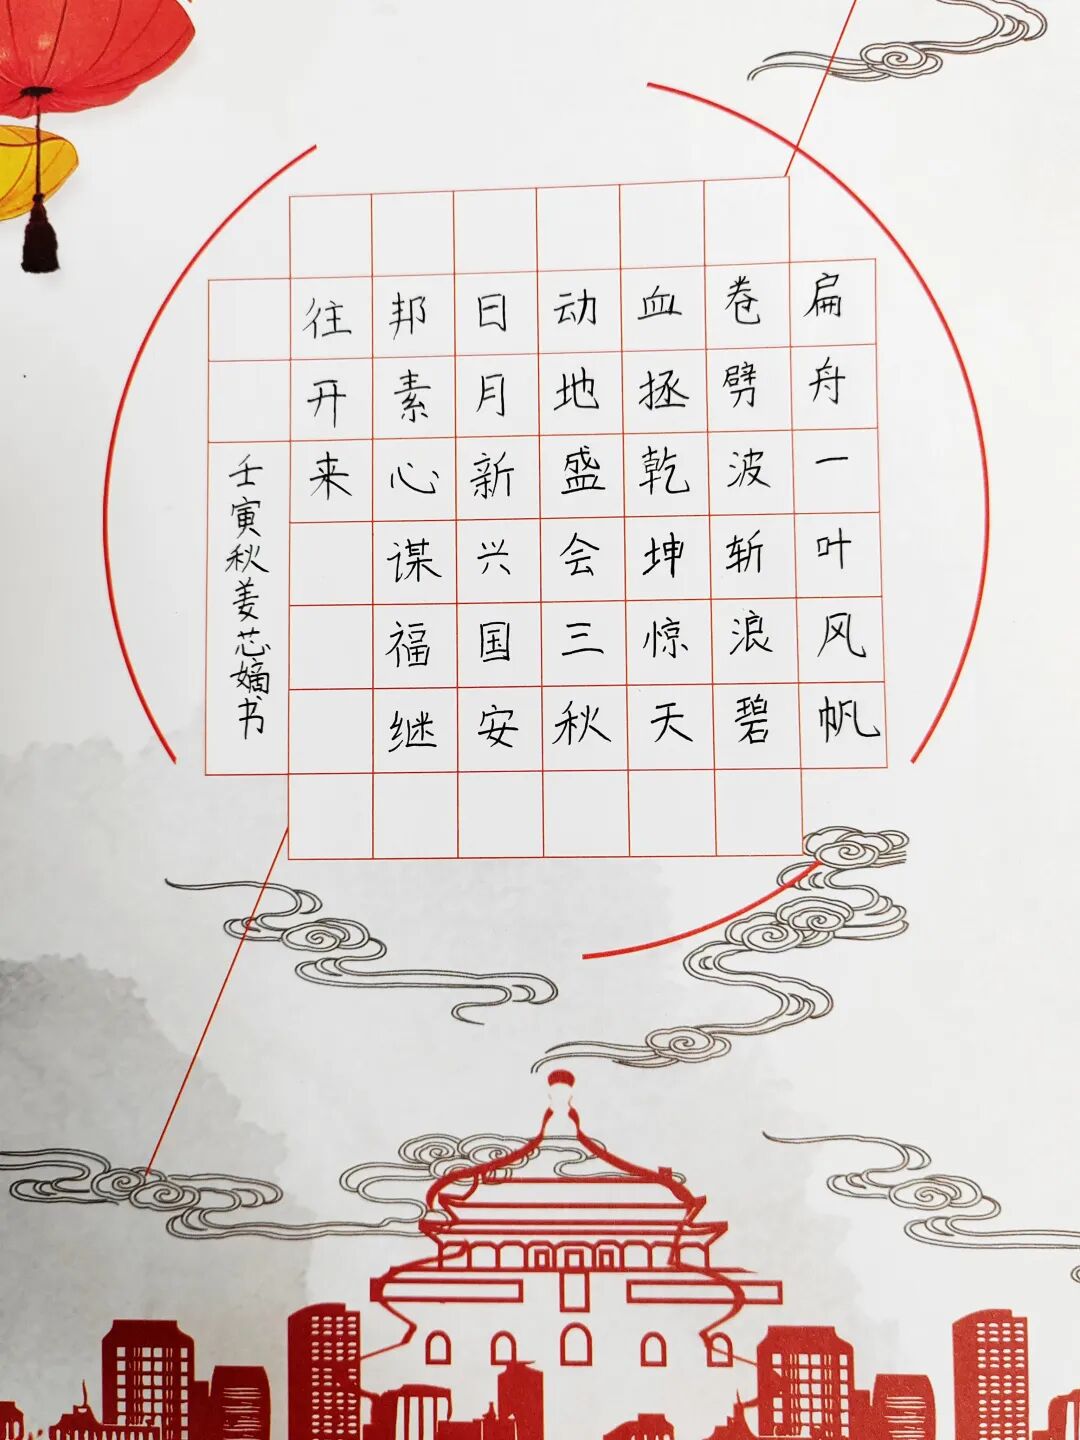 扁舟一叶风帆
卷劈波斩浪碧
血拯乾坤惊天
动地盛会三秋
日月新兴国安
邦素心谋福继
往开来
壬寅秋姜芯嫡书